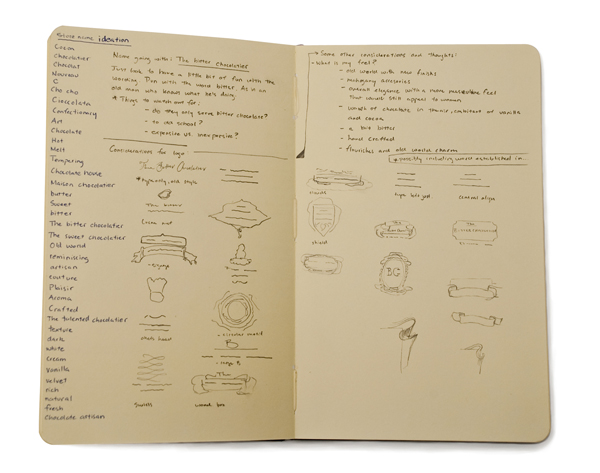 Store name ideation
Cocoa
Chocolatier
Chocolat
Nouveau
C
Cho cho
Cioccolata
Confectionary
Art
Chocolate
Hot
Melt
Tempering
Chocolate house
Maison chocolatier
butter
Sweet
bitter
The bitter chocolatier
The sweet chocolatier
Old world
reminiscing
artisan
couture
Plaisir
Aroma
Crafted
The talented chocolatier
texture
dark
white
cream
Vanilla
velvet
rich
natural
fresh
Chocolate artisan
Name going with: The bitter chocolatier
Just look to have a little bit of fun with the
wording. Pun with the word bitter. As in an
old man who knows what he's doing
* Things to watch out for:
- do they only serve bitter chocolate?
- to old school?
- expensive vs. inexpensive?
Considerations for logo
The Bitter Chocolatier
The bitter
Cocoa nut
- circular motif
B
Swirls
The
wood box
* Some other considerations and thoughts:
- What is my feel?
- old world with new finish
- mahogany accessories
- overall elegance with a more masculine feel
that would still appeal to women
- smell of chocolate in thanic, ambient of vanilla
and cocoa
- a bit bitter
- hand crafted
- flourishes and old world charm
* possibly including word established in...
type left just
central align
shield
The
The
BC